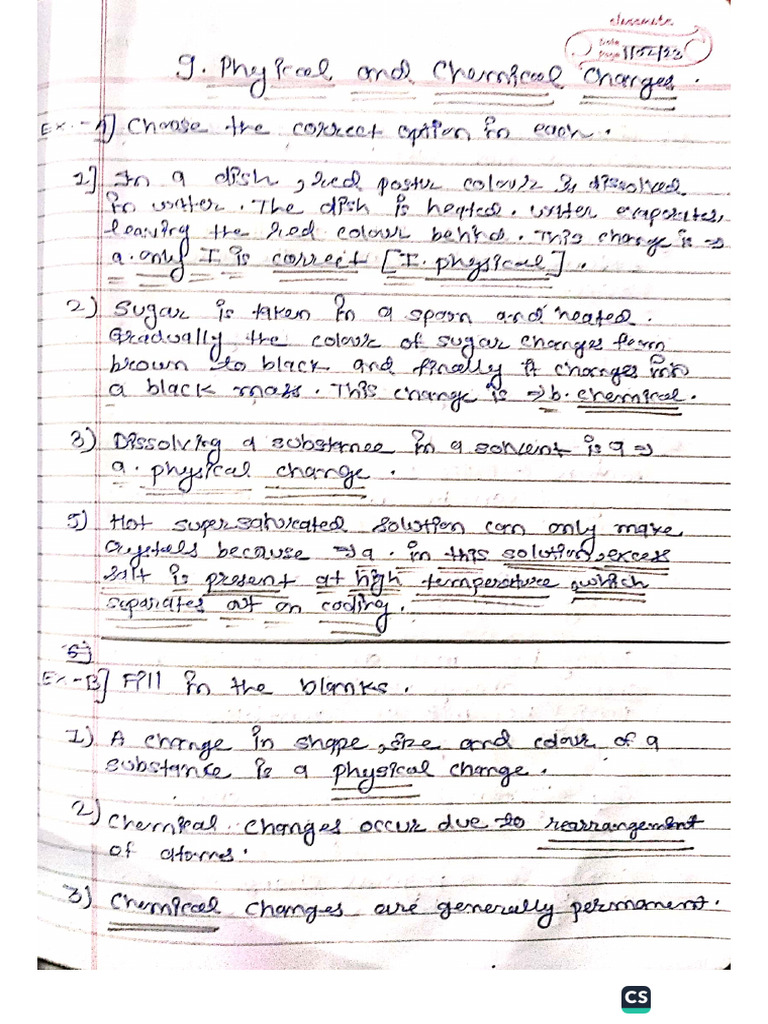 classmate
Date
Page 1/02/23
9. Phyical and Chemical Changes.
Ex.-A] Choose the correct option in each.
1] In a dish, red poster colour is dissolved
in water. The dish is heated. water evaporates,
leaving the red colour behind. This change is ⇒
a. only I is correct [I. physical].
2) Sugar is taken in a spoon and heated.
Gradually the colour of sugar changes from
brown to black and finally it changes into
a black mass. This change is ⇒ b. chemical.
3) Dissolving a substance in a solvent is a ⇒
a. physical change.
5) Hot supersaturated solution can only make
crystals because ⇒ a. in this solution, excess
salt is present at high temperature, which
separates out on cooling.
5]
Ex.-B] Fill in the blanks.
1) A change in shape, size and colour of a
substance is a physical change.
2) Chemical changes occur due to rearrangement
of atoms.
3) Chemical changes are generally permanent.
CS